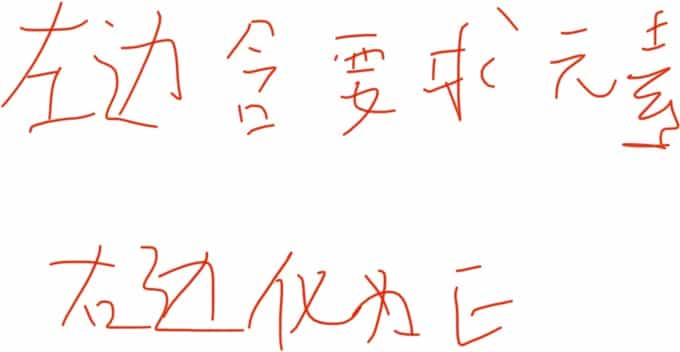 左边含要求元素
右边化为E